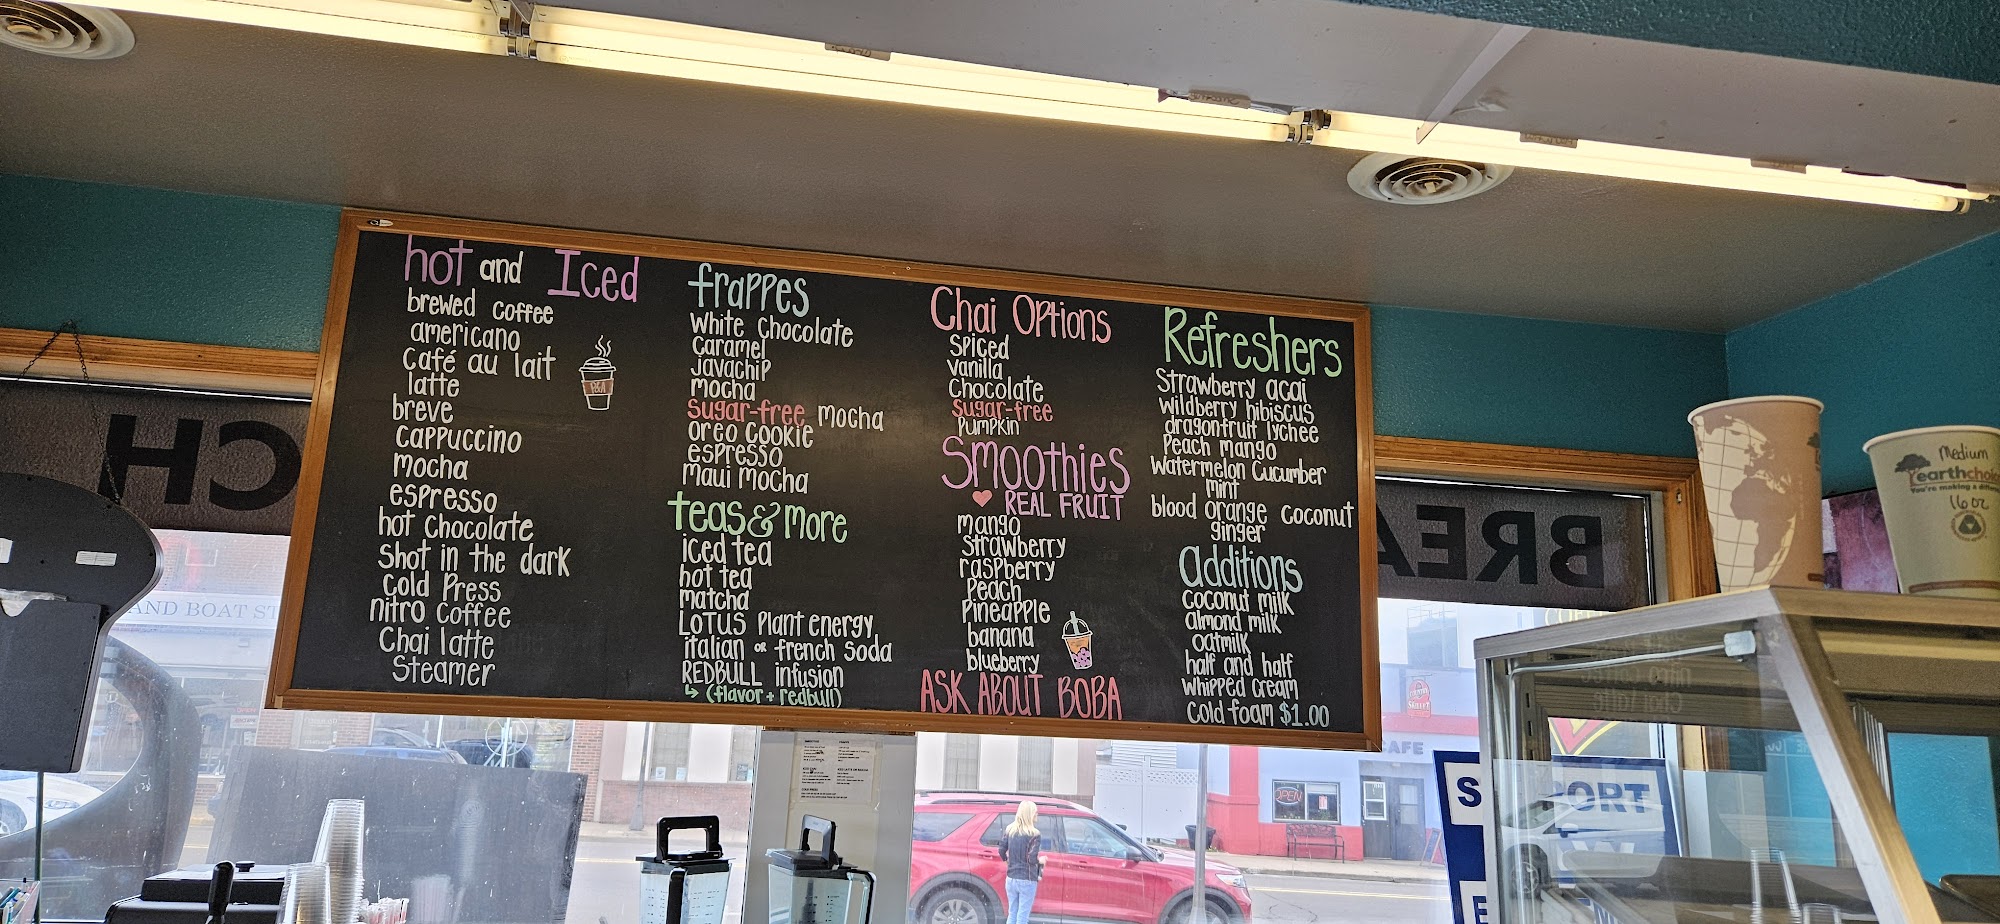 hot and Iced
brewed coffee
americano
café au lait
latte
breve
cappuccino
mocha
espresso
hot chocolate
shot in the dark
cold press
nitro coffee
Chai latte
Steamer
frappes
White chocolate
caramel
javachip
mocha
sugar-free mocha
oreo cookie
espresso
Maui mocha
teas & more
iced tea
hot tea
matcha
LOTUS Plant energy
italian or french soda
REDBULL infusion
(flavor + redbull)
Chai Options
spiced
vanilla
Chocolate
sugar-free
Pumpkin
Smoothies
REAL FRUIT
mango
strawberry
raspberry
peach
pineapple
banana
blueberry
ASK ABOUT BOBA
Refreshers
Strawberry acai
Wildberry hibiscus
dragonfruit lychee
Peach mango
Watermelon Cucumber
mint
blood orange coconut
ginger
additions
coconut milk
almond milk
oatmilk
half and half
whipped cream
cold foam $1.00
Medium
earthchoice
You're making a difference
16 oz
AND BOAT
CAFE
OPEN